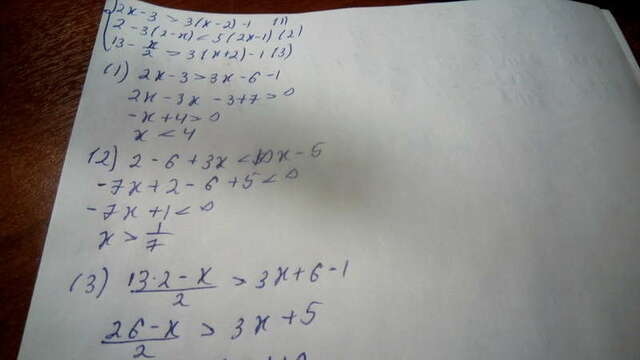 2x-3 > 3(x-2)-1 (1)
2-3(2-x) < 5(2x-1) (2)
13-x/2 > 3(x+2)-1 (3)
(1) 2x-3>3x-6-1
2x-3x-3+7>0
-x+4>0
x<4
(2) 2-6+3x<10x-5
-7x+2-6+5<0
-7x+1<0
x > 1/7
(3) 13·2-x/2 > 3x+6-1
26-x/2 > 3x+5